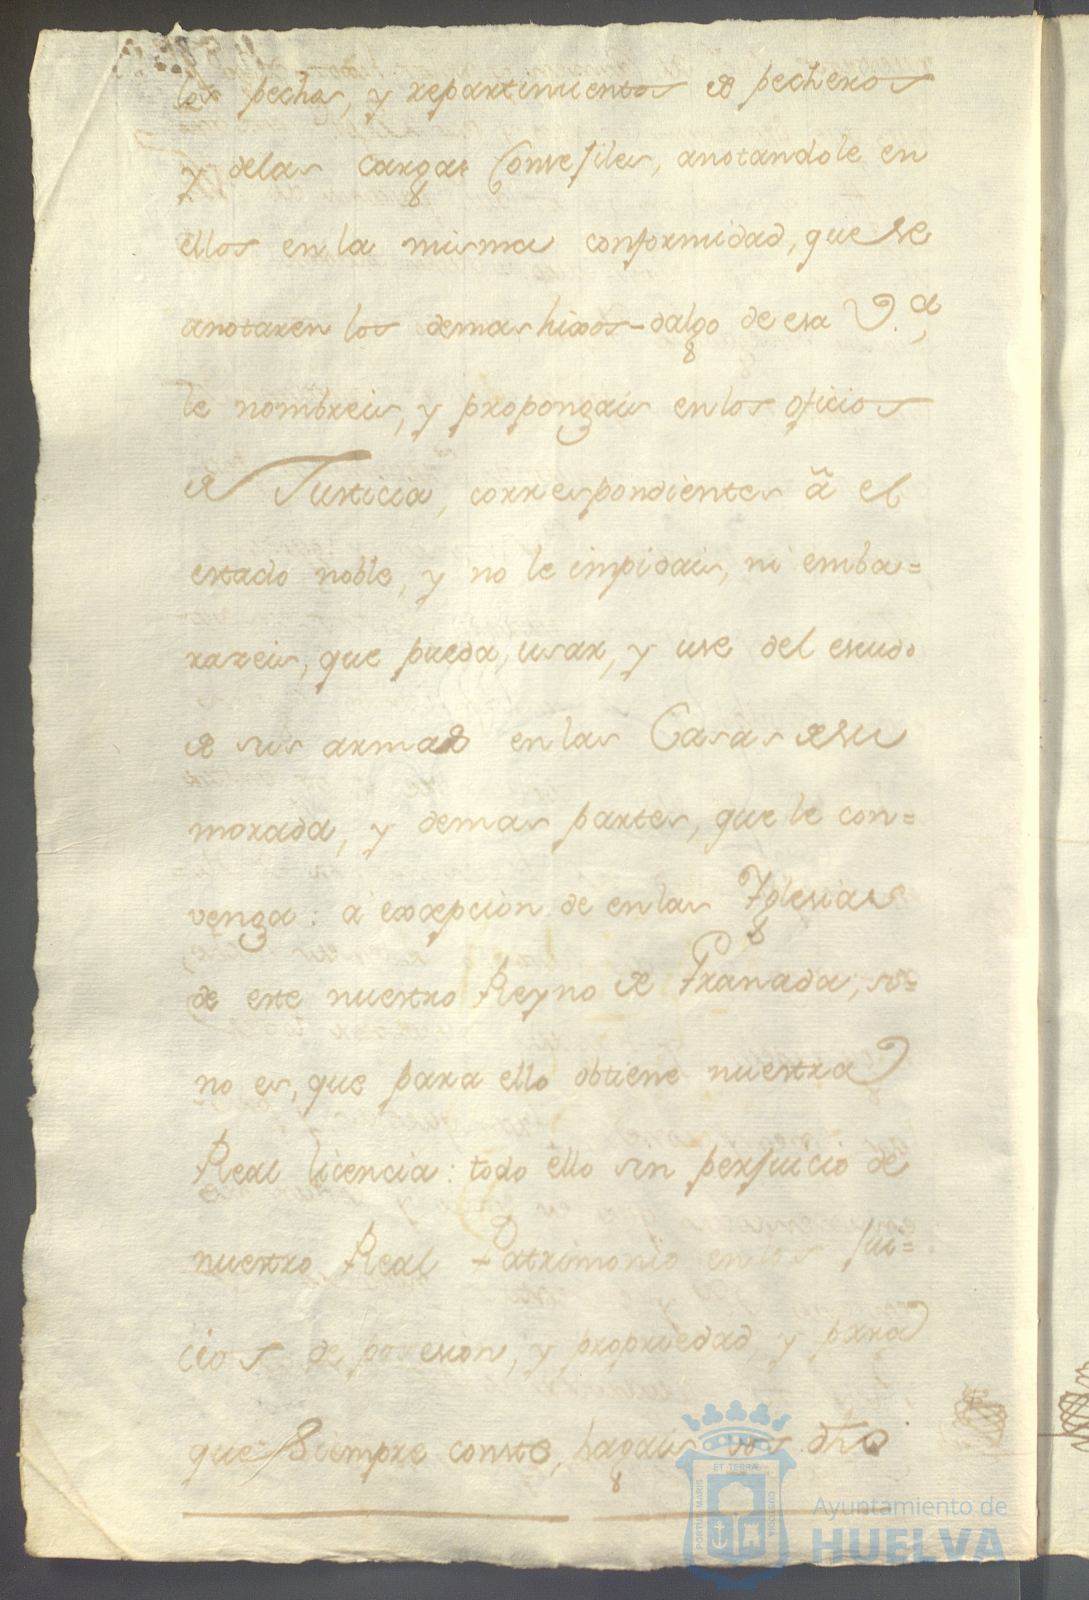 los pechos, y repartimientos de pecheros
y delas cargas Consejiles, anotandole en
ellos en la misma conformidad, que se
anotaren los demas hixos-dalgo de esa V.ª,
le nombreis, y propongais en los oficios
de Justicia, correspondientes â el
estado noble, y no le impidais, ni emba=
razeis, que pueda, usar, y use del escudo
de sus armas en las Casas de su
morada, y demas partes, que le con=
venga: a excepcion de en las Yglesias
de este nuestro Reyno de Granada, si
no es, que para ello obtiene nuestra
Real licencia: todo ello sin perjuicio de
nuestro Real Patrimonio en los Jui=
cios de posesion, y propriedad, y para
que Siempre conste, hagais vos dho
PORTUS MARIS
ET TERRÆ
CUSTODIA
Ayuntamiento de
HUELVA